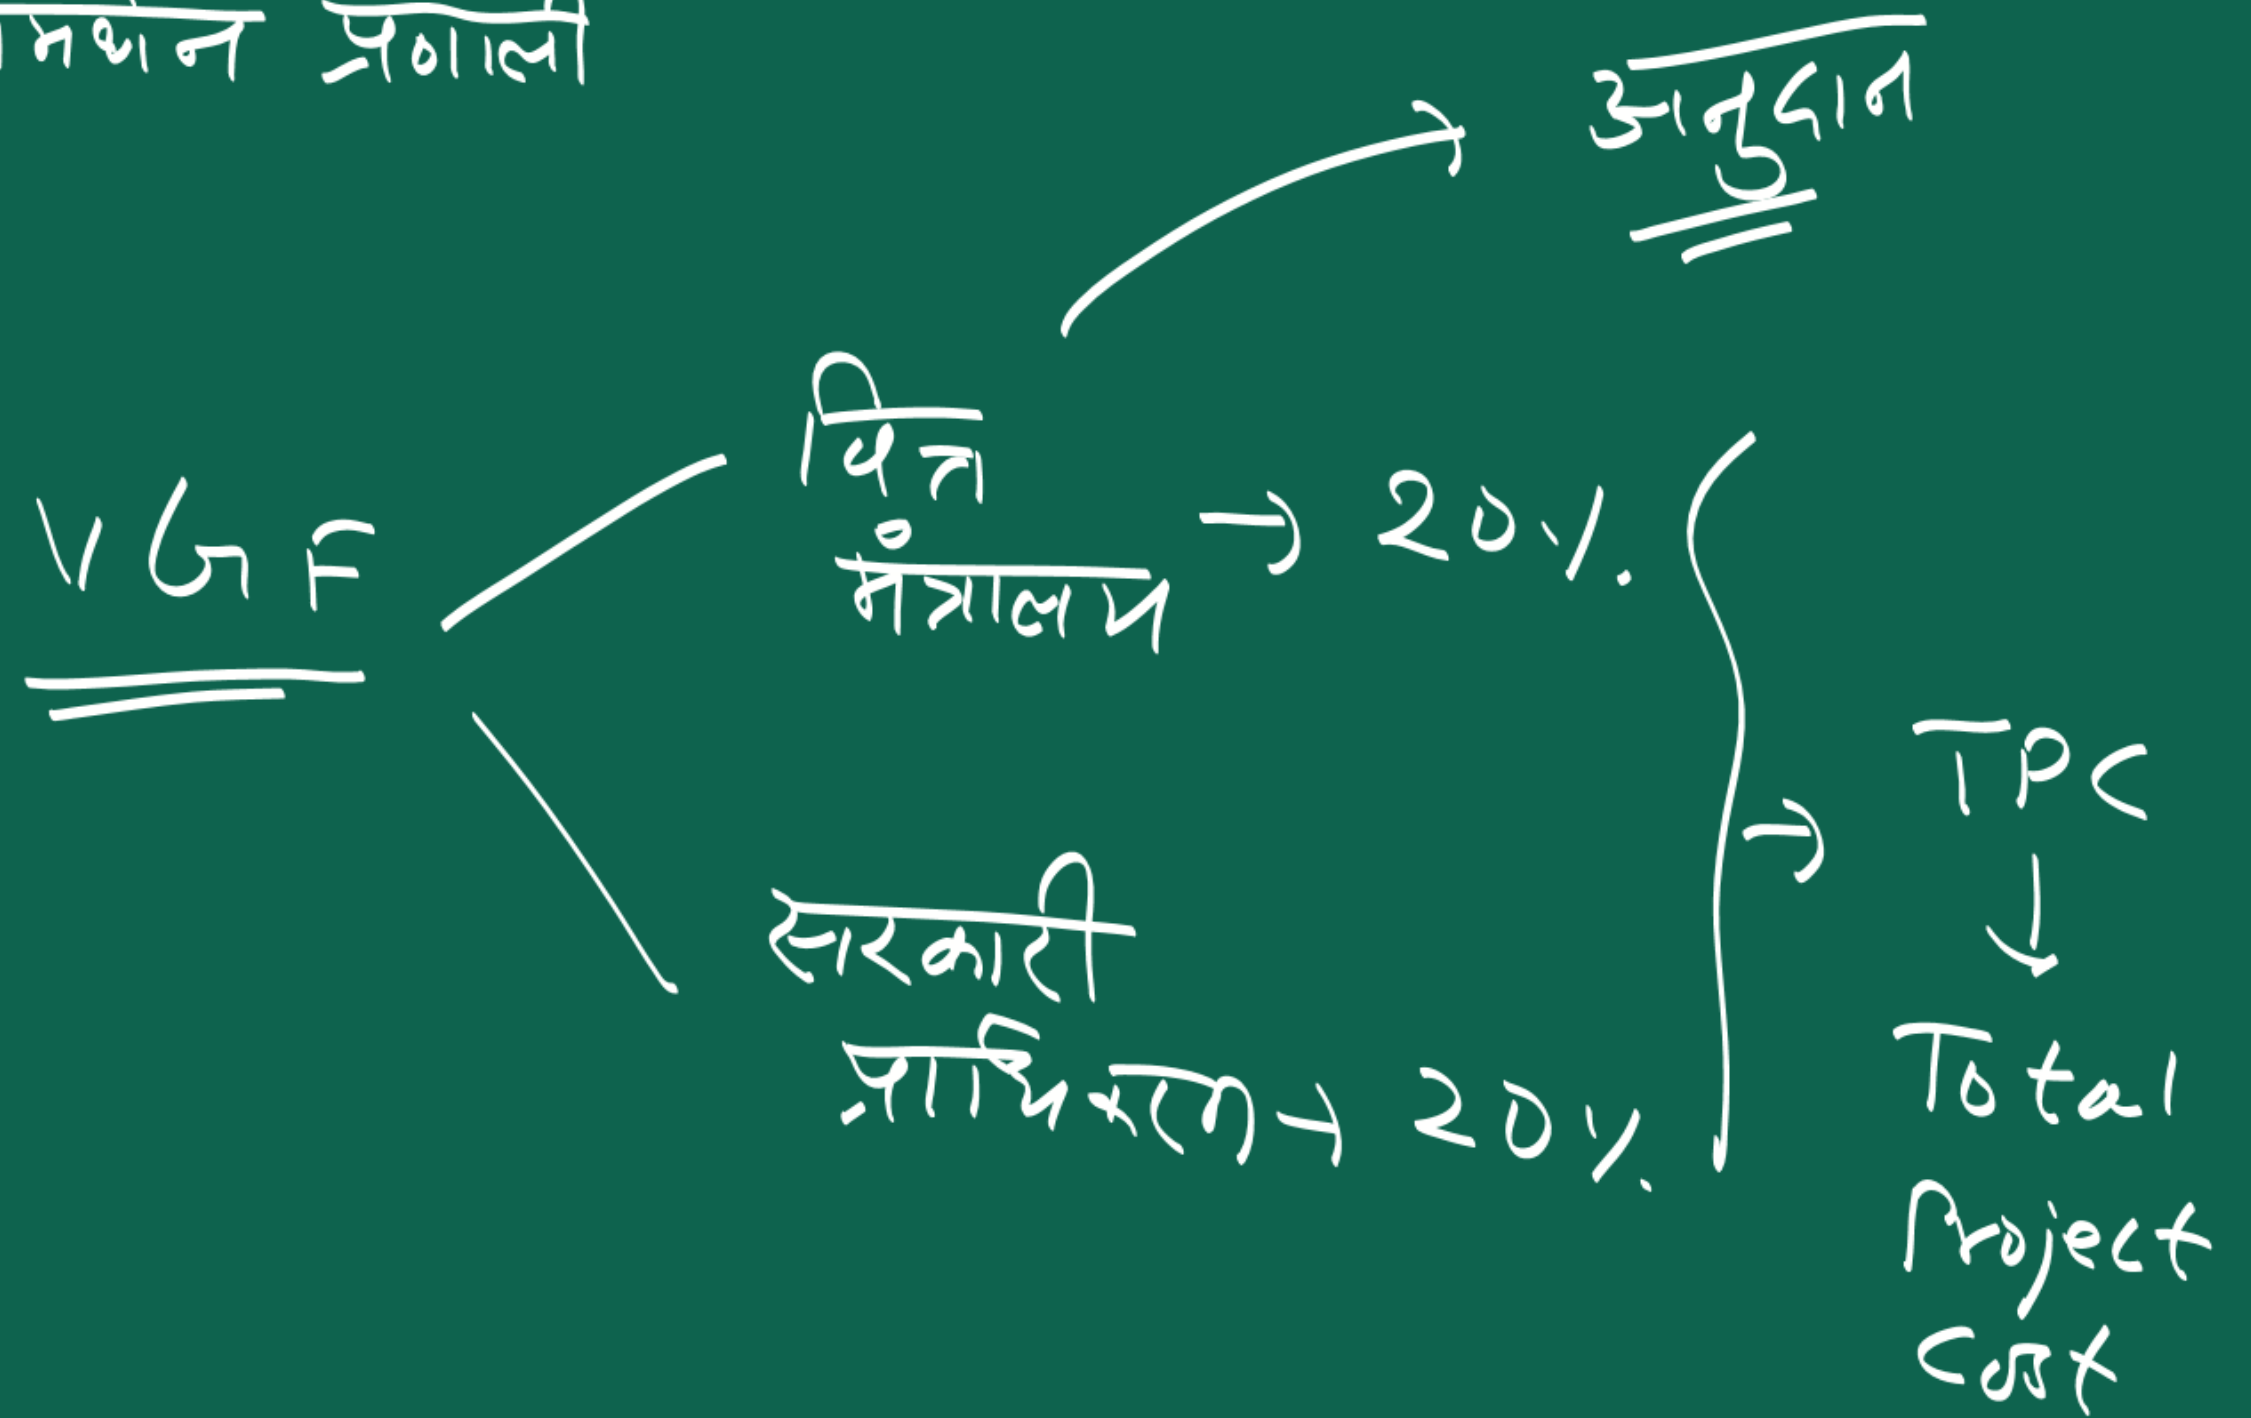 प्रणाली
अनुदान
VGF
वित्त
मंत्रालय → 20%
सरकारी
प्राधिकरण → 20%
→ TPC
↓
Total
Project
Cost